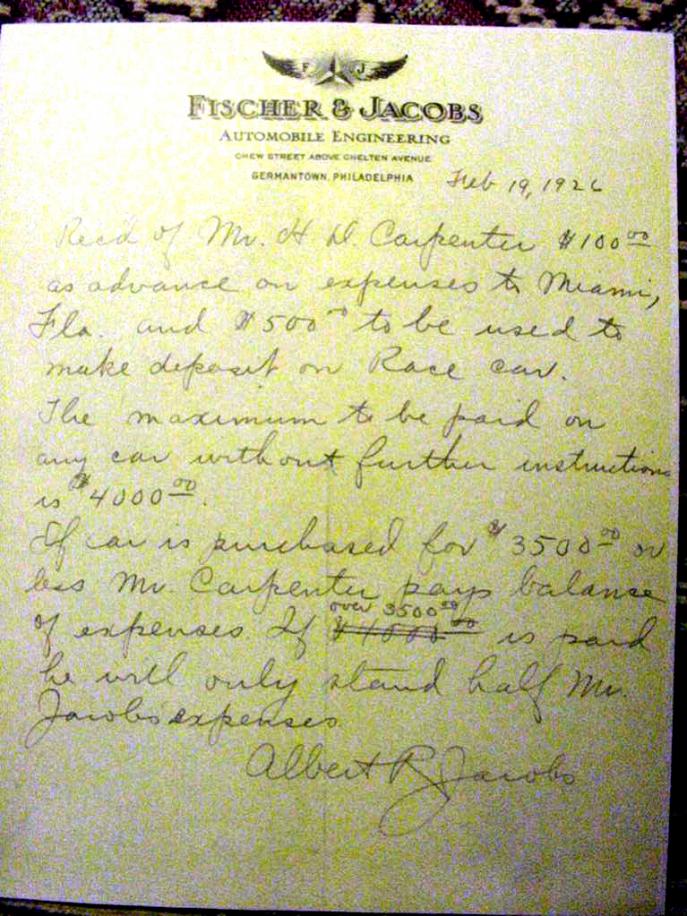 F J
FISCHER & JACOBS
AUTOMOBILE ENGINEERING
CHEW STREET ABOVE CHELTEN AVENUE
GERMANTOWN, PHILADELPHIA
Feb 19, 1926
Recd of Mr. H. D. Carpenter $100 00
as advance on expenses to Miami,
Fla. and $500 00 to be used to
make deposit on Race car.
The maximum to be paid on
any car without further instructions
is $4000 00.
If car is purchased for $3500 00 or
less Mr. Carpenter pays balance
over 3500 00
of expenses If $4000 00 is paid
he will only stand half Mr.
Jacobs expenses
Albert R Jacobs